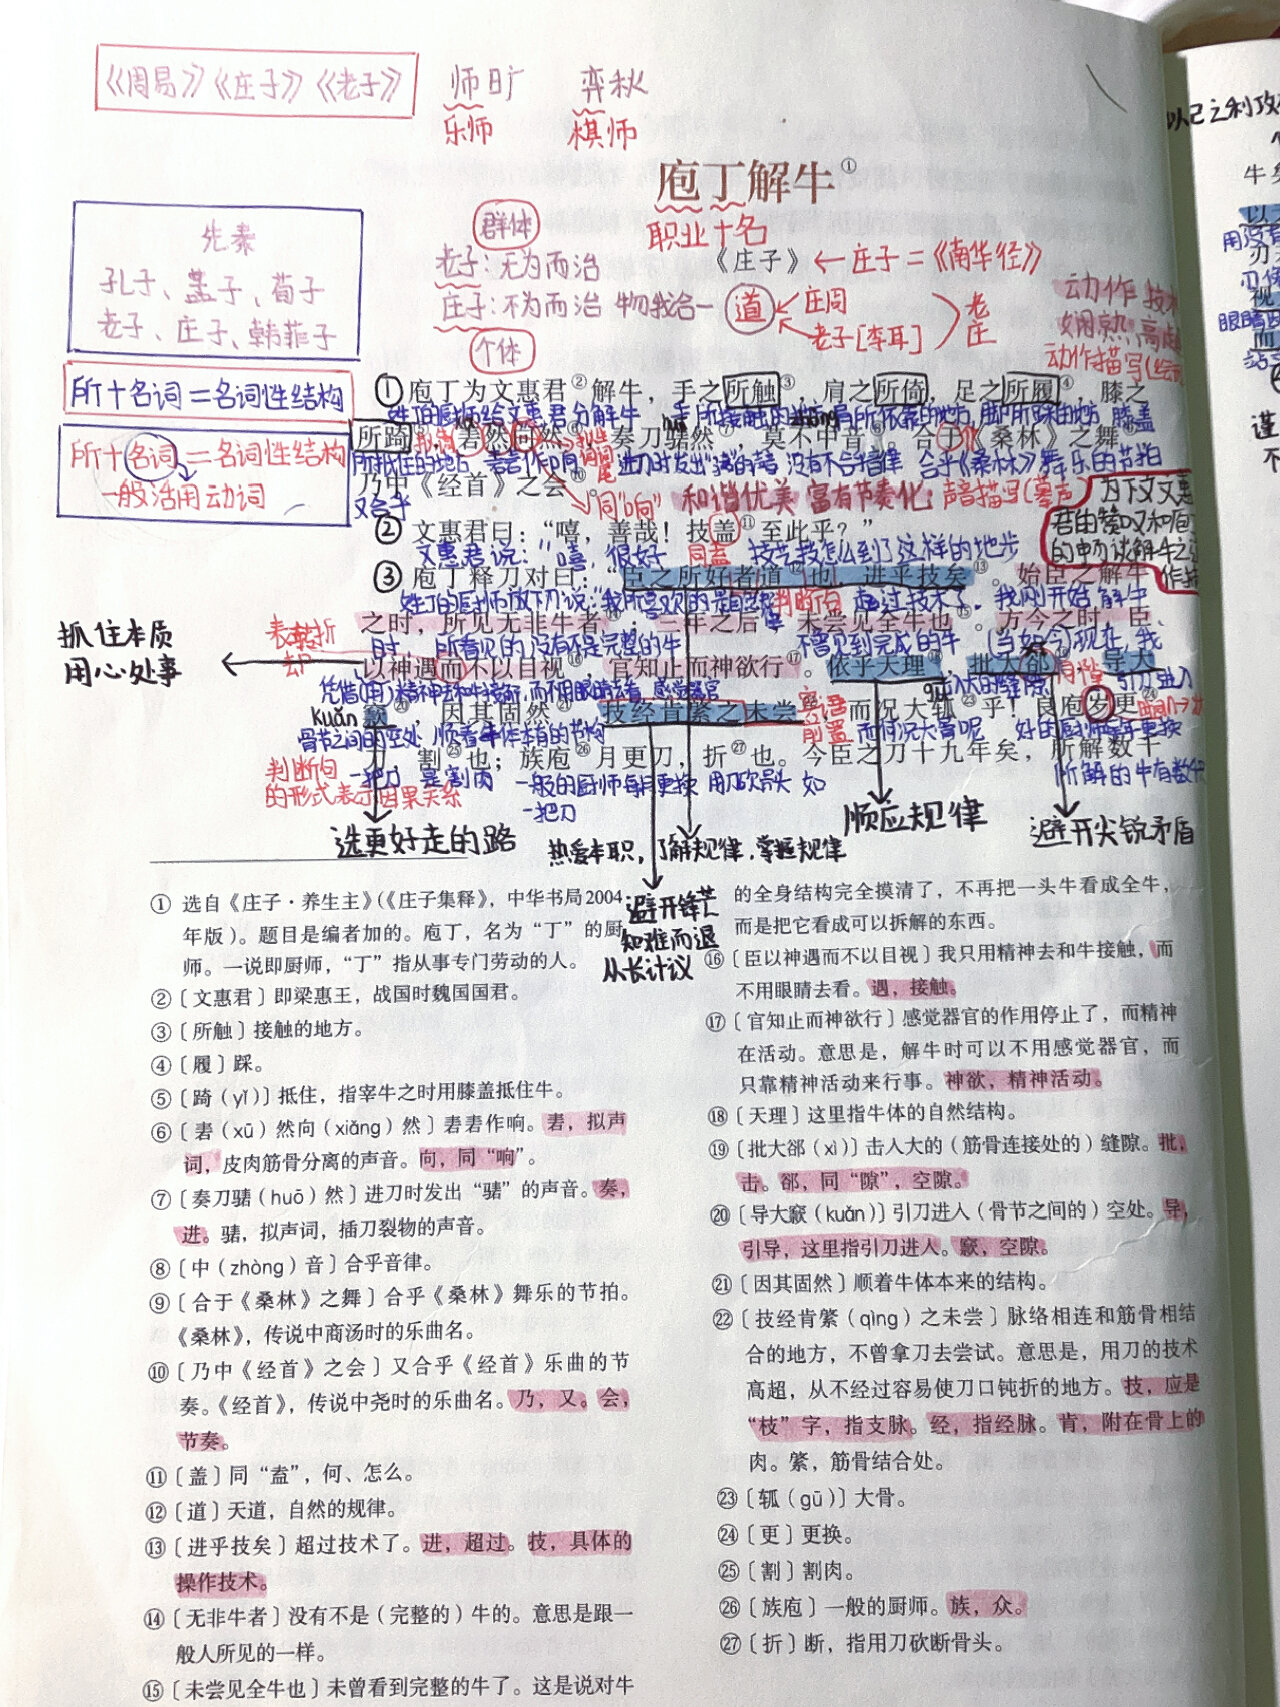 《周易》《庄子》《老子》
师旷 弈秋
乐师 棋师
庖丁解牛①
职业+名
先秦
孔子、孟子、荀子
老子、庄子、韩菲子
群体
老子:无为而治
庄子:不为而治 物我合一
个体
《庄子》←庄子=《南华径》
道
庄周
老子[李耳]
老庄
动作 技术
娴熟、高
动作描写
所+名词=名词性结构
所+名词=名词性结构
一般活用动词
①庖丁为文惠君②解牛,手之所触③,肩之所倚,足之所履④,膝之
姓丁的厨师给文惠君分解牛 手所接触的地方 肩所依靠的地方 脚所踩的地方 膝盖
所踦⑤,砉然向然⑥,奏刀騞然⑦,莫不中音⑧。合于《桑林》之舞⑨,
所抵住的地方 砉砉作响 进刀时发出“騞”的声音 没有不合音律 合乎《桑林》舞乐的节拍
乃中《经首》之会⑩。
又合乎
同“响” 和谐优美 富有节奏化:声音描写
②文惠君曰:“嘻,善哉!技盖⑪至此乎?”
文惠君说:“嘻,很好 同盍 技艺怎么到了这样的地步
③庖丁释刀对曰:“臣之所好者道⑫也,进乎技矣⑬。始臣之解牛
姓丁的厨师放下刀说“我所喜欢的是自然 判断句 超过技术了。我刚开始解牛
之时,所见无非牛者⑭;三年之后,未尝见全牛也⑮。方今之时,臣
时,所看见的没有不是完整的牛 不曾见到完成的牛 (当如今)现在,我
表转折
却
抓住本质
用心处事
以神遇而不以目视⑯,官知止而神欲行⑰。依乎天理⑱,批大郤⑲,导大
凭借(用)精神去和牛接触,而不用眼睛去看 感觉器官
kuǎn
窾⑳,因其固然㉑,技经肯綮之未尝㉒,而况大軱㉓乎!良庖岁更㉔
骨节之间的空处 顺着牛体本有的结构 宾语前置 而何况大骨呢 好的厨师每年更换
刀,割㉕也;族庖㉖月更刀,折㉗也。今臣之刀十九年矣,所解数千
判断句
的形式表示因果关系
一把刀 是割肉 一般的厨师每月更换 用刀砍骨头 如
一把刀
所解的牛有数千
选更好走的路
热爱本职,了解规律,掌握规律
顺应规律
避开尖锐矛盾
避开锋芒
知难而退
从长计议
① 选自《庄子·养生主》(《庄子集释》,中华书局2004
年版)。题目是编者加的。庖丁,名为“丁”的厨
师。一说即厨师,“丁”指从事专门劳动的人。
②〔文惠君〕即梁惠王,战国时魏国国君。
③〔所触〕接触的地方。
④〔履〕踩。
⑤〔踦(yǐ)〕抵住,指宰牛之时用膝盖抵住牛。
⑥〔砉(xū)然向(xiǎng)然〕砉砉作响。砉,拟声
词,皮肉筋骨分离的声音。向,同“响”。
⑦〔奏刀騞(huō)然〕进刀时发出“騞”的声音。奏,
进。騞,拟声词,插刀裂物的声音。
⑧〔中(zhòng)音〕合乎音律。
⑨〔合于《桑林》之舞〕合乎《桑林》舞乐的节拍。
《桑林》,传说中商汤时的乐曲名。
⑩〔乃中《经首》之会〕又合乎《经首》乐曲的节
奏。《经首》,传说中尧时的乐曲名。乃,又。会,
节奏。
⑪〔盖〕同“盍”,何、怎么。
⑫〔道〕天道,自然的规律。
⑬〔进乎技矣〕超过技术了。进,超过。技,具体的
操作技术。
⑭〔无非牛者〕没有不是(完整的)牛的。意思是跟一
般人所见的一样。
⑮〔未尝见全牛也〕未曾看到完整的牛了。这是说对牛
的全身结构完全摸清了,不再把一头牛看成全牛,
而是把它看成可以拆解的东西。
⑯〔臣以神遇而不以目视〕我只用精神去和牛接触,而
不用眼睛去看。遇,接触。
⑰〔官知止而神欲行〕感觉器官的作用停止了,而精神
在活动。意思是,解牛时可以不用感觉器官,而
只靠精神活动来行事。神欲,精神活动。
⑱〔天理〕这里指牛体的自然结构。
⑲〔批大郤(xì)〕击入大的(筋骨连接处的)缝隙。批,
击。郤,同“隙”,空隙。
⑳〔导大窾(kuǎn)〕引刀进入(骨节之间的)空处。导,
引导,这里指引刀进入。窾,空隙。
㉑〔因其固然〕顺着牛体本来的结构。
㉒〔技经肯綮(qìng)之未尝〕脉络相连和筋骨相结
合的地方,不曾拿刀去尝试。意思是,用刀的技术
高超,从不经过容易使刀口钝折的地方。技,应是
“枝”字,指支脉。经,指经脉。肯,附在骨上的
肉。綮,筋骨结合处。
㉓〔軱(gū)〕大骨。
㉔〔更〕更换。
㉕〔割〕割肉。
㉖〔族庖〕一般的厨师。族,众。
㉗〔折〕断,指用刀砍断骨头。